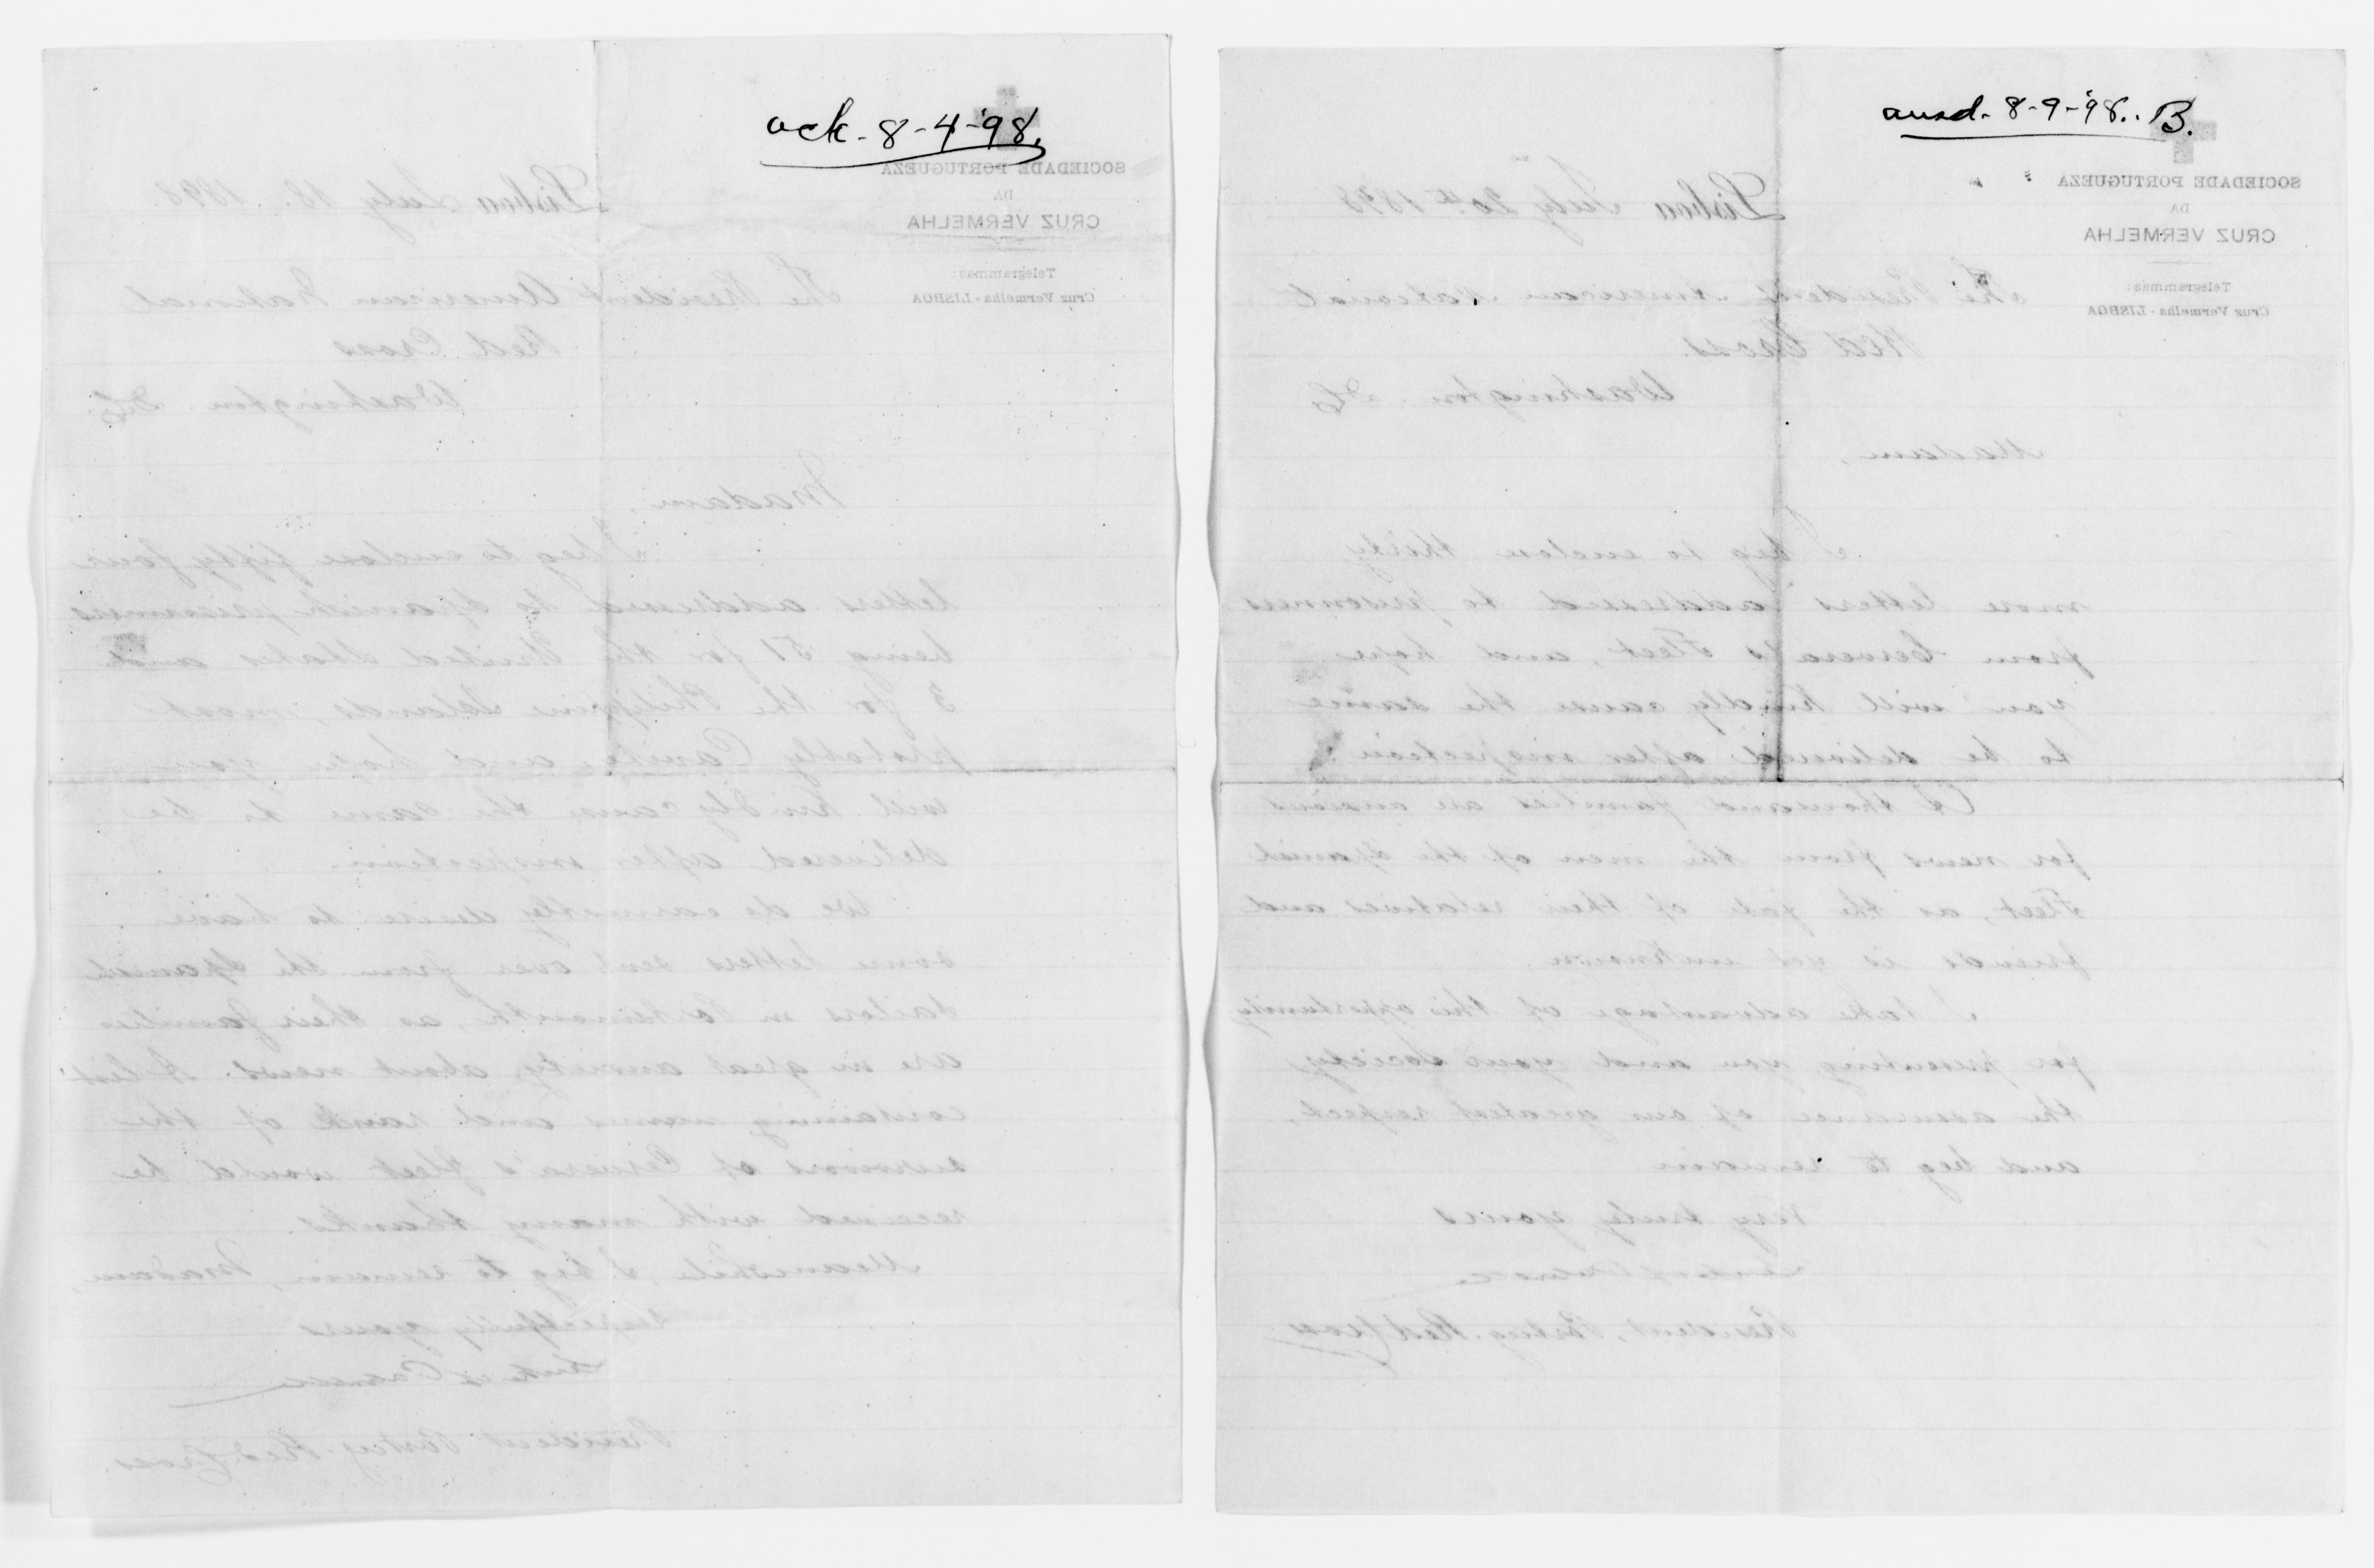 ack - 8-4-'98.
SOCIEDADE PORTUGUEZA
DA
CRUZ VERMELHA
Telegrammas:
Cruz Vermelha - LISBOA
Lisboa July 18. 1898
The President American National
Red Cross
Washington DC
Madam,
I beg to enclose fifty four
letters addressed to Spanish prisoners,
being 51 for the United States and
3 for the Philippine Islands, most
probably Cavite, and hope you
will kindly cause the same to be
delivered after inspection.
We do earnestly desire to have
some letters sent over from the Spanish
sailors in Portsmouth, as their families
are in great anxiety about news. A list
containing names and rank of the
survivors of Cervera's fleet would be
received with many thanks.
Meanwhile, I beg to remain, Madam,
respectfully yours
President Portug. Red Cross
ansd. 8-9-'98.. B.
SOCIEDADE PORTUGUEZA
DA
CRUZ VERMELHA
Telegrammas:
Cruz Vermelha - LISBOA
Lisboa July 20th 1898
The President American National
Red Cross.
Washington DC
Madam,
I beg to enclose thirty
more letters addressed to prisonners
from Cervera's Fleet, and hope
you will kindly cause the same
to be delivered after inspection.
A thousand families are anxious
for news from the men of the Spanish
Fleet, as the fate of their relatives and
friends is yet unknown.
I take advantage of this opportunity
for presenting you and your Society,
the assurance of our greatest respect,
and beg to remain
Very truly yours
President, Portug. Red Cross